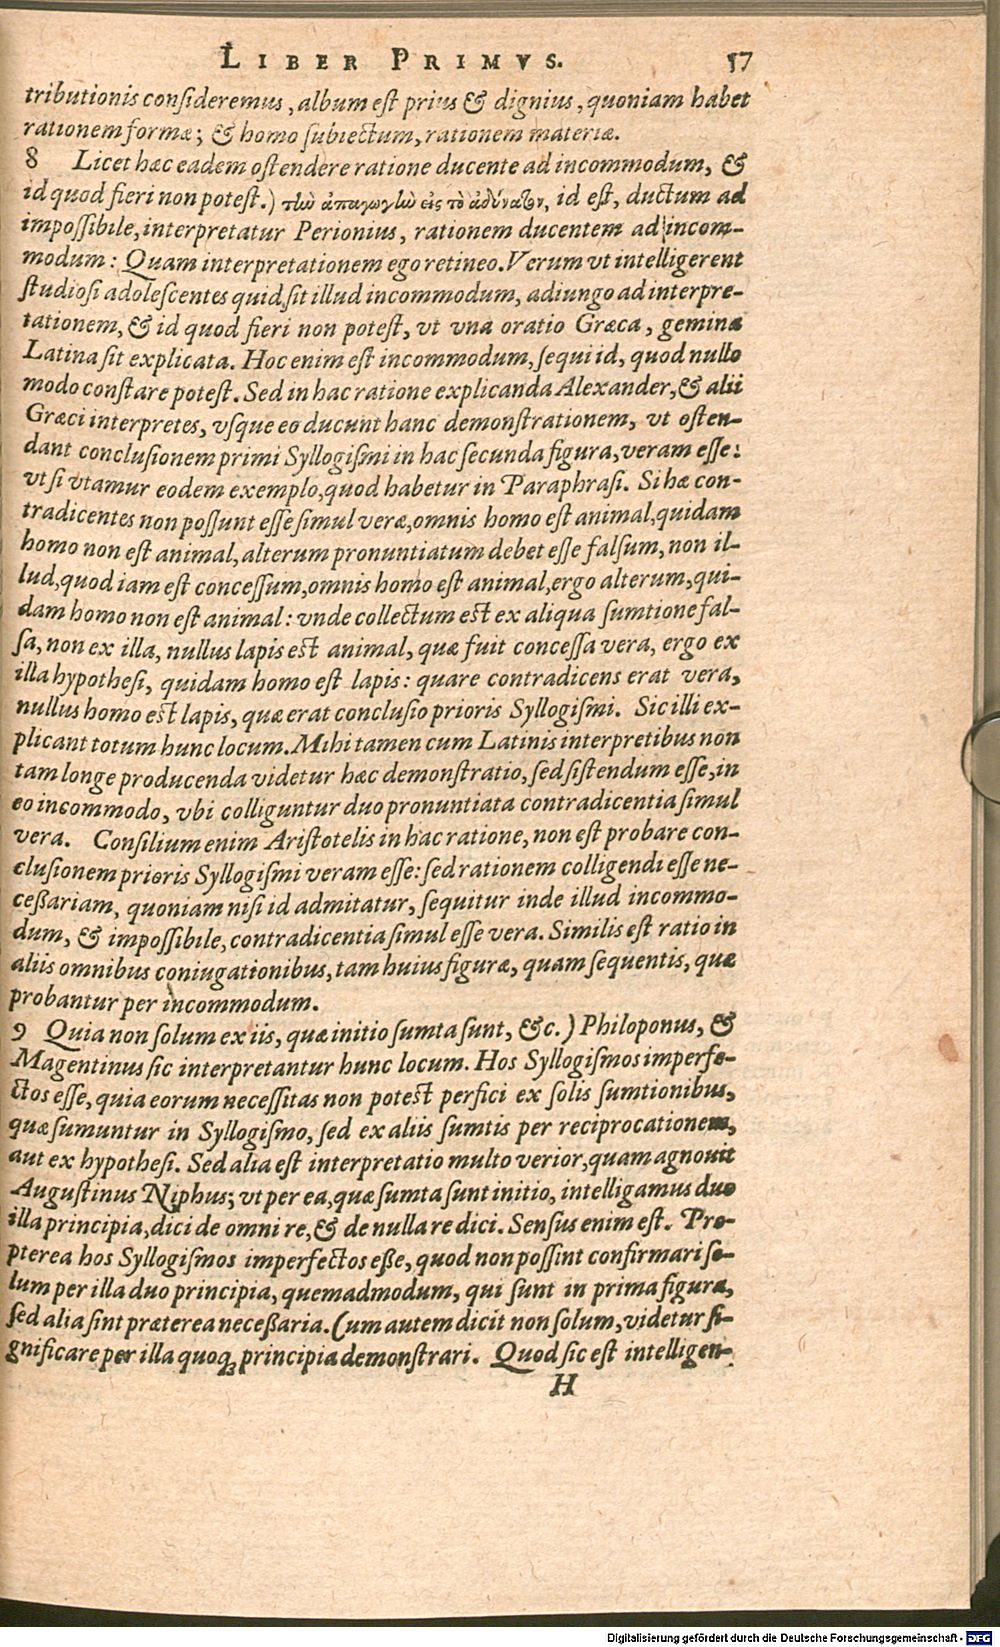 LIBER PRIMVS. 57
tributionis consideremus, album est prius & dignius, quoniam habet
rationem formæ; & homo subiectum, rationem materiæ.
8 Licet hæc eadem ostendere ratione ducente ad incommodum, &
id quod fieri non potest.) τὴν ἀπαγωγὴν εἰς τὸ ἀδύνατον, id est, ductum ad
impossibile, interpretatur Perionius, rationem ducentem ad incom-
modum: Quam interpretationem ego retineo. Verum vt intelligerent
studiosi adolescentes quid sit illud incommodum, adiungo ad interpre-
tationem, & id quod fieri non potest, vt vna oratio Græca, gemina
Latina sit explicata. Hoc enim est incommodum, sequi id, quod nullo
modo constare potest. Sed in hac ratione explicanda Alexander, & alii
Græci interpretes, vsque eo ducunt hanc demonstrationem, vt osten-
dant conclusionem primi Syllogismi in hac secunda figura, veram esse:
vt si vtamur eodem exemplo, quod habetur in Paraphrasi. Si hæ con-
tradicentes non possunt esse simul veræ, omnis homo est animal, quidam
homo non est animal, alterum pronuntiatum debet esse falsum, non il-
lud, quod iam est concessum, omnis homo est animal, ergo alterum, qui-
dam homo non est animal: vnde collectum est ex aliqua sumtione fal-
sa, non ex illa, nullus lapis est animal, quæ fuit concessa vera, ergo ex
illa hypothesi, quidam homo est lapis: quare contradicens erat vera,
nullus homo est lapis, quæ erat conclusio prioris Syllogismi. Sic illi ex-
plicant totum hunc locum. Mihi tamen cum Latinis interpretibus non
tam longe producenda videtur hæc demonstratio, sed sistendum esse, in
eo incommodo, vbi colliguntur duo pronuntiata contradicentia simul
vera. Consilium enim Aristotelis in hac ratione, non est probare con-
clusionem prioris Syllogismi veram esse: sed rationem colligendi esse ne-
ceßariam, quoniam nisi id admitatur, sequitur inde illud incommo-
dum, & impossibile, contradicentia simul esse vera. Similis est ratio in
aliis omnibus coniugationibus, tam huius figuræ, quam sequentis, quæ
probantur per incommodum.
9 Quia non solum ex iis, quæ initio sumta sunt, &c.) Philoponus, &
Magentinus sic interpretantur hunc locum. Hos Syllogismos imperfe-
ctos esse, quia eorum necessitas non potest perfici ex solis sumtionibus,
quæ sumuntur in Syllogismo, sed ex aliis sumtis per reciprocationem,
aut ex hypothesi. Sed alia est interpretatio multo verior, quam agnouit
Augustinus Niphus; vt per ea, quæ sumta sunt initio, intelligamus duo
illa principia, dici de omni re, & de nulla re dici. Sensus enim est. Pro-
pterea hos Syllogismos imperfectos eße, quod non possint confirmari so-
lum per illa duo principia, quemadmodum, qui sunt in prima figura,
sed alia sint præterea neceßaria. Cum autem dicit non solum, videtur si-
gnificare per illa quoq; principia demonstrari. Quod sic est intelligen-
H
Digitalisierung gefördert durch die Deutsche Forschungsgemeinschaft - DFG